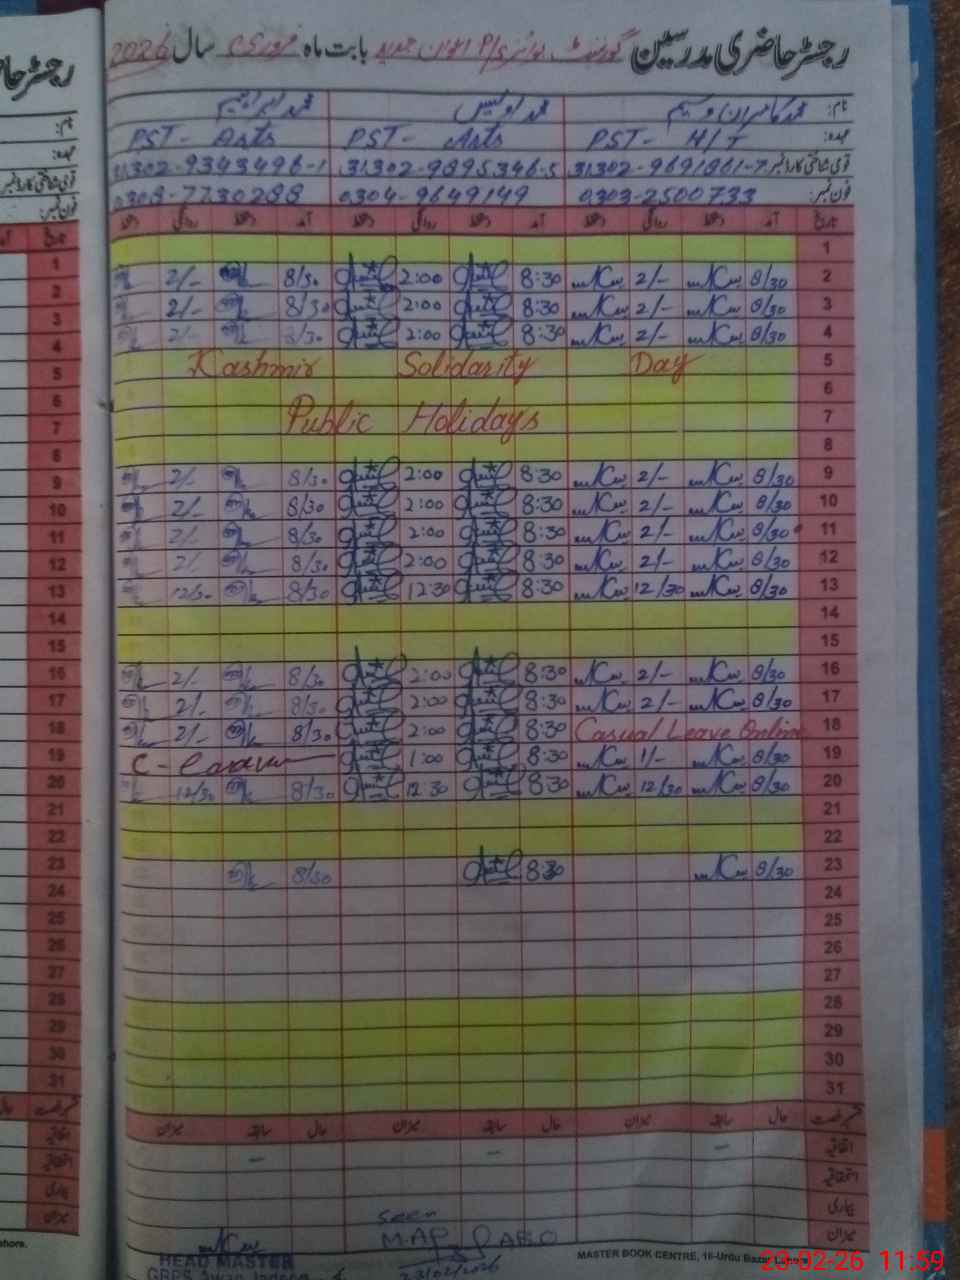 رجسٹر حاضری مدرسین گورنمنٹ بوائز P/S اعوان جدید بابت ماہ فروری سال 2026
نام: محمد کامران وسیم محمد اویس محمد ابراہیم
عہدہ: PST - H/T PST - Arts PST - Arts
قومی شناختی کارڈ نمبر 31302-9691861-7 31302-9895346-5 31302-9343496-1
فون نمبر: 0303-2500733 0304-9649149 0308-7730288
تاریخ آمد دستخط روانگی دستخط آمد دستخط روانگی دستخط آمد دستخط روانگی دستخط
1
2 8/30 2/- 8:30 2:00 8/30 2/-
3 8/30 2/- 8:30 2:00 8/30 2/-
4 8/30 2/- 8:30 2:00 8/30 2/-
5 Kashmir Solidarity Day
6
7 Public Holidays
8
9 8/30 2/- 8:30 2:00 8/30 2/-
10 8/30 2/- 8:30 2:00 8/30 2/-
11 8/30 2/- 8:30 2:00 8/30 2/-
12 8/30 2/- 8:30 2:00 8/30 2/-
13 8/30 12/30 8:30 12:30 8/30 12/30
14
15
16 8/30 2/- 8:30 2:00 8/30 2/-
17 8/30 2/- 8:30 2:00 8/30 2/-
18 Casual Leave Online 8:30 2:00 8/30 2/-
19 8/30 1/- 8:30 1:00 C-
20 8/30 12/30 8:30 12:30 8/30 12/30
21
22
23 8/30 8:30 8/30
24
25
26
27
28
29
30
31
قسم رخصت حال سابقہ میزان حال سابقہ میزان حال سابقہ میزان
اتفاقیہ - - -
استحقاقیہ
بیماری
میزان
seen
HEAD MASTER
GBPS Awan Jadeed
23/02/2026
MASTER BOOK CENTRE, 16-Urdu Bazar Lahore
23-02-26 11:59